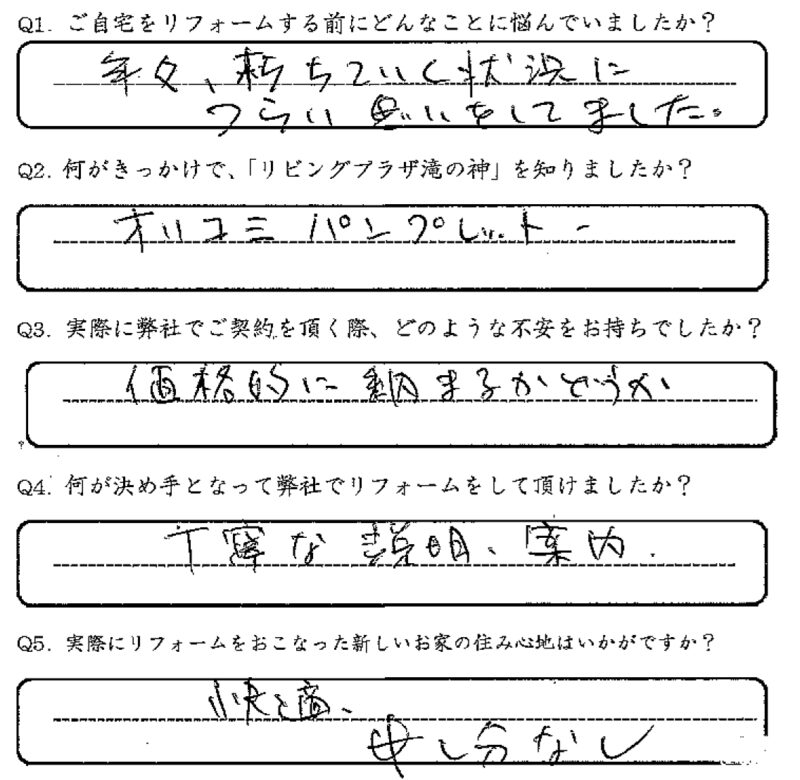 Q1. ご自宅をリフォームする前にどんなことに悩んでいましたか？
年々、朽ちていく状況に
つらい思いをしてました。
Q2. 何がきっかけで、「リビングプラザ滝の神」を知りましたか？
オリコミ パンフレット
Q3. 実際に弊社でご契約を頂く際、どのような不安をお持ちでしたか？
価格的に納まるかどうか
Q4. 何が決め手となって弊社でリフォームをして頂けましたか？
丁寧な説明、案内.
Q5. 実際にリフォームをおこなった新しいお家の住み心地はいかがですか？
快適、
申し分なし